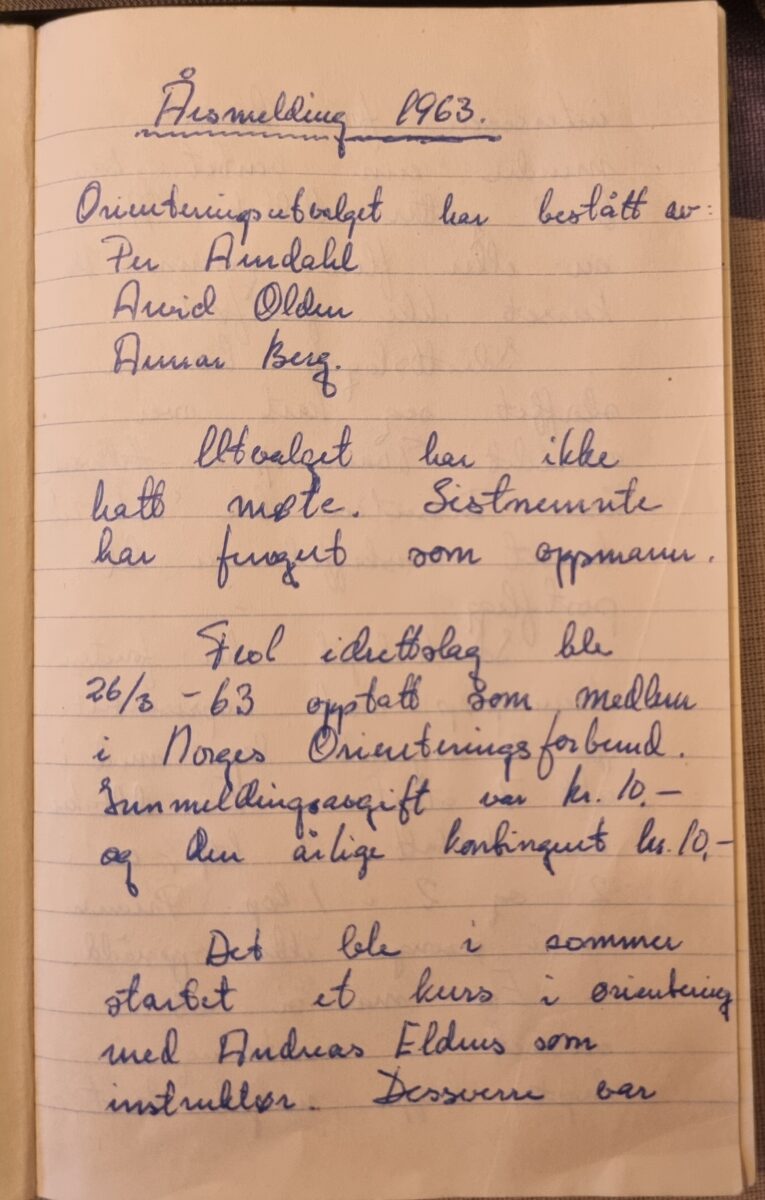 Årsmelding 1963.
Orienteringsutvalget har bestått av:
Per Amdahl
Arvid Olden
Annar Berg.
Utvalget har ikke
hatt møte. Sistnemnte
har fungert som oppmann.
Frol idrettslag ble
26/3 - 63 opptatt som medlem
i Norges Orienteringsforbund.
Innmeldingsavgift var kr. 10.-
og den årlige kontingent kr. 10,-
Det ble i sommer
startet et kurs i orientering
med Andreas Eldnes som
instruktør. Dessverre var